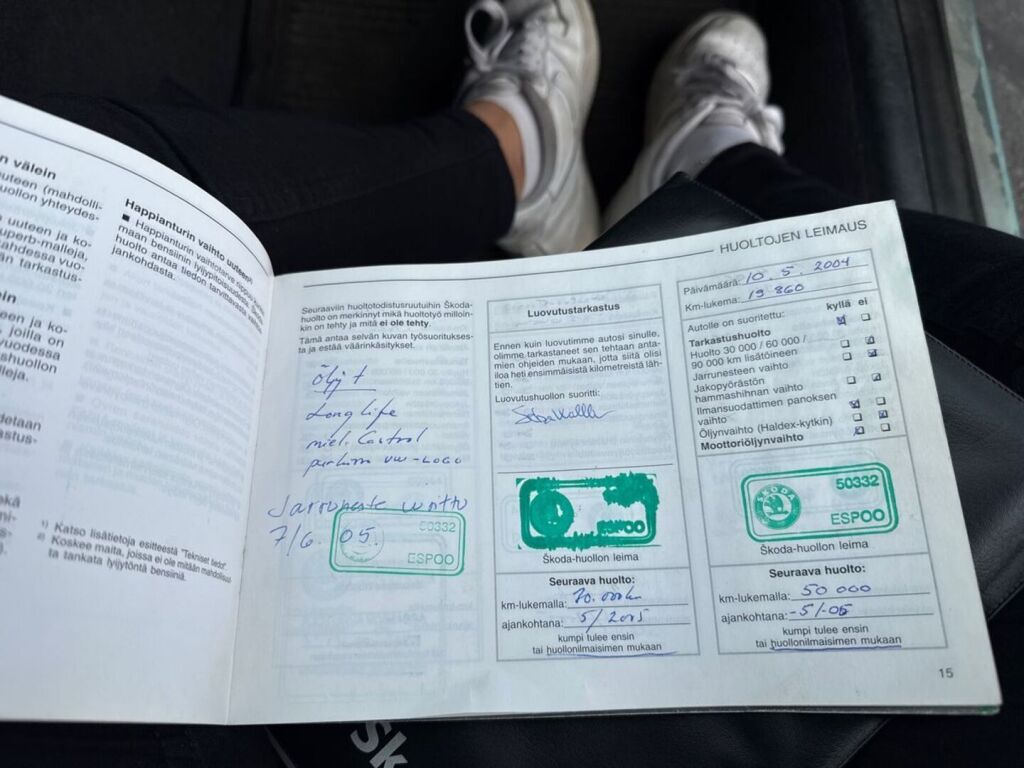 n välein
uuteen (mahdolli-
uollon yhteydes-
a uuteen ja ko-
uperb-malleja,
tahdessa vuo-
än tarkastus-
ein
een ja ko-
, joilla on
vuodessa
shuollon
lleja.
detaan
astus-
Happianturin vaihto uuteen
■ Happianturin vaihtotarve riippuu
maan bensiinin lyijypitoisuudesta. Škoda-
huolto antaa tiedon tarvittavasta vaihto-
jankohdasta.
¹) Katso lisätietoja esitteestä "Tekniset tiedot".
²) Koskee maita, joissa ei ole mitään mahdollisuut-
ta tankata lyijytöntä bensiiniä.
HUOLTOJEN LEIMAUS
Seuraaviin huoltotodistusruutuihin Škoda-
huolto on merkinnyt mikä huoltotyö milloin-
kin on tehty ja mitä ei ole tehty.
Tämä antaa selvän kuvan työsuorituksес-
ta ja estää väärinkäsitykset.
Öljyt
Long Life
miel. Castrol
VW-LOGO
Jarruneste
7/6. 05.
50332
ESPOO
Luovutustarkastus
Ennen kuin luovutimme autosi sinulle,
olimme tarkastaneet sen tehtaan anta-
mien ohjeiden mukaan, jotta siitä olisi
iloa heti ensimmäisistä kilometreistä läh-
tien.
Luovutushuollon suoritti:
ESPOO
Škoda-huollon leima
Seuraava huolto:
km-lukemalla:
ajankohtana: 5/2005
kumpi tulee ensin
tai huollonilmaisimen mukaan
Päivämäärä: 10. 5. 2004
Km-lukema: 19 860
Autolle on suoritettu: kyllä ei
Tarkastushuolto
Huolto 30 000 / 60 000 /
90 000 km lisätöineen
Jarrunesteen vaihto
Jakopyörästön
hammashihnan vaihto
Ilmansuodattimen panoksen
vaihto
Öljynvaihto (Haldex-kytkin)
Moottoriöljynvaihto
ŠKODA
50332
ESPOO
Škoda-huollon leima
Seuraava huolto:
km-lukemalla: 50 000
ajankohtana: -5/-05
kumpi tulee ensin
tai huollonilmaisimen mukaan
15
Sk